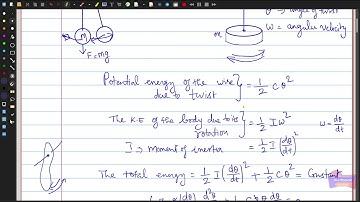 θ → angle of twist
ω = angular velocity
m
F=mg
Potential energy of the wire due to twist } = 1/2 Cθ²
The K.E of the body due to its rotation } = 1/2 Iω² ω = dθ/dt
I → moment of inertia = 1/2 I(dθ/dt)²
The total energy = 1/2 I(dθ/dt)² + 1/2 Cθ² = Constant